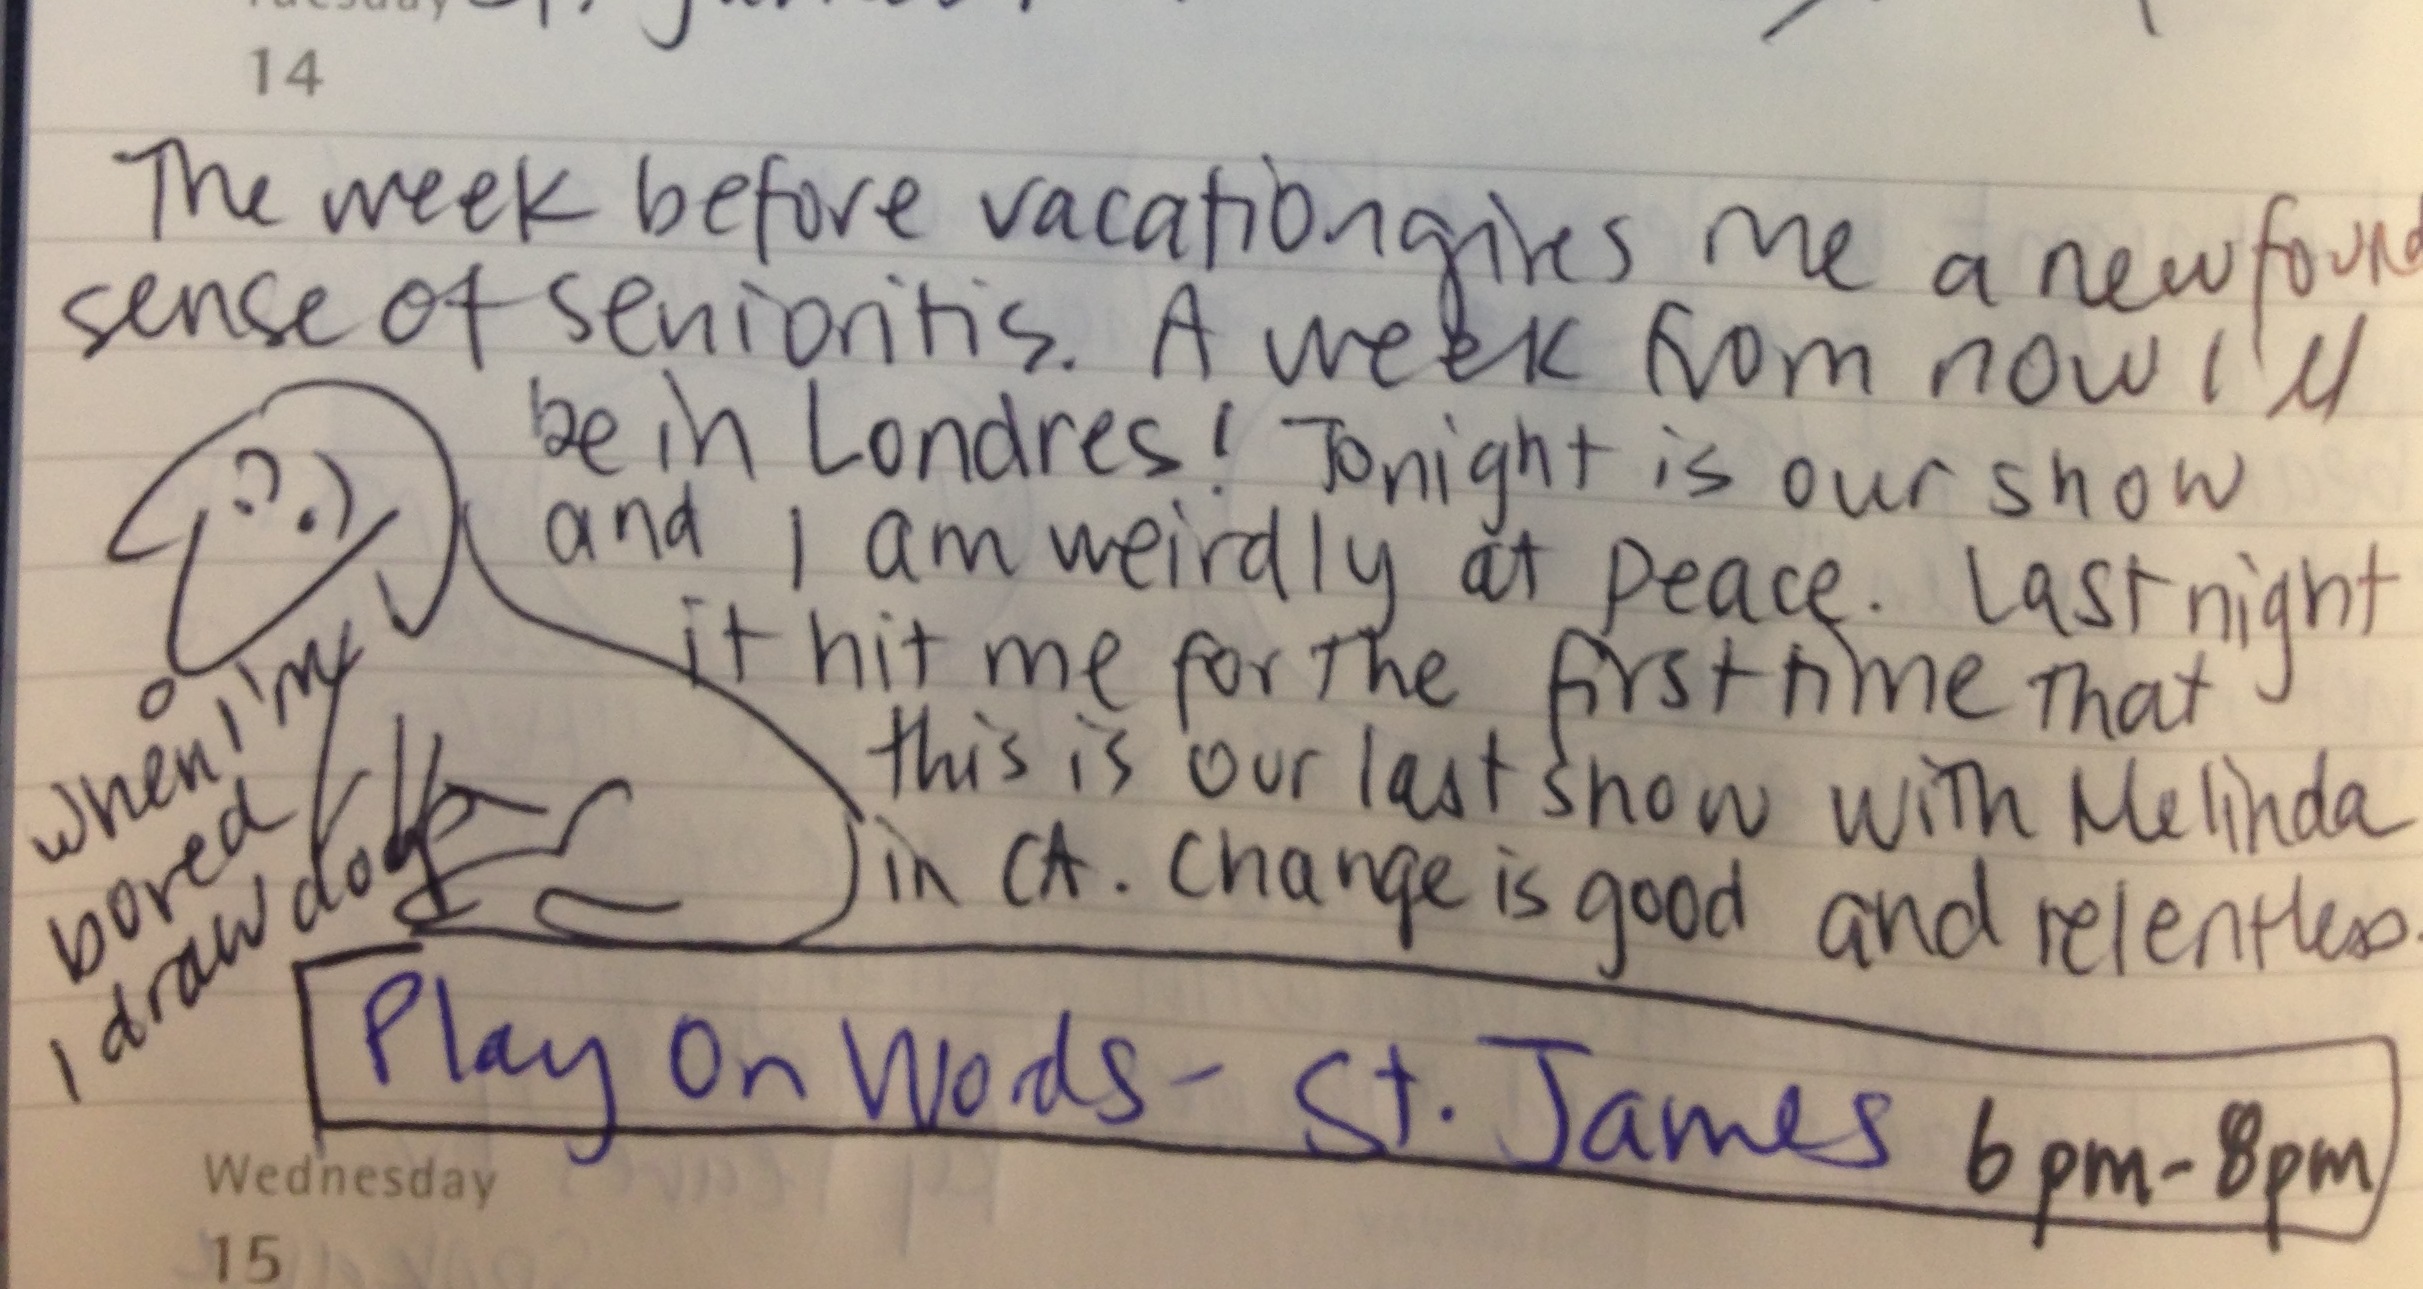 Tuesday St. James
14
The week before vacation gives me a newfound
sense of senioritis. A week from now I'll
be in Londres! Tonight is our show
and I am weirdly at peace. Last night
it hit me for the first time that
this is our last show with Melinda
in CA. Change is good and relentless.
when I'm
bored
I draw dogs
Play On Words - St. James 6pm-8pm
Wednesday
15